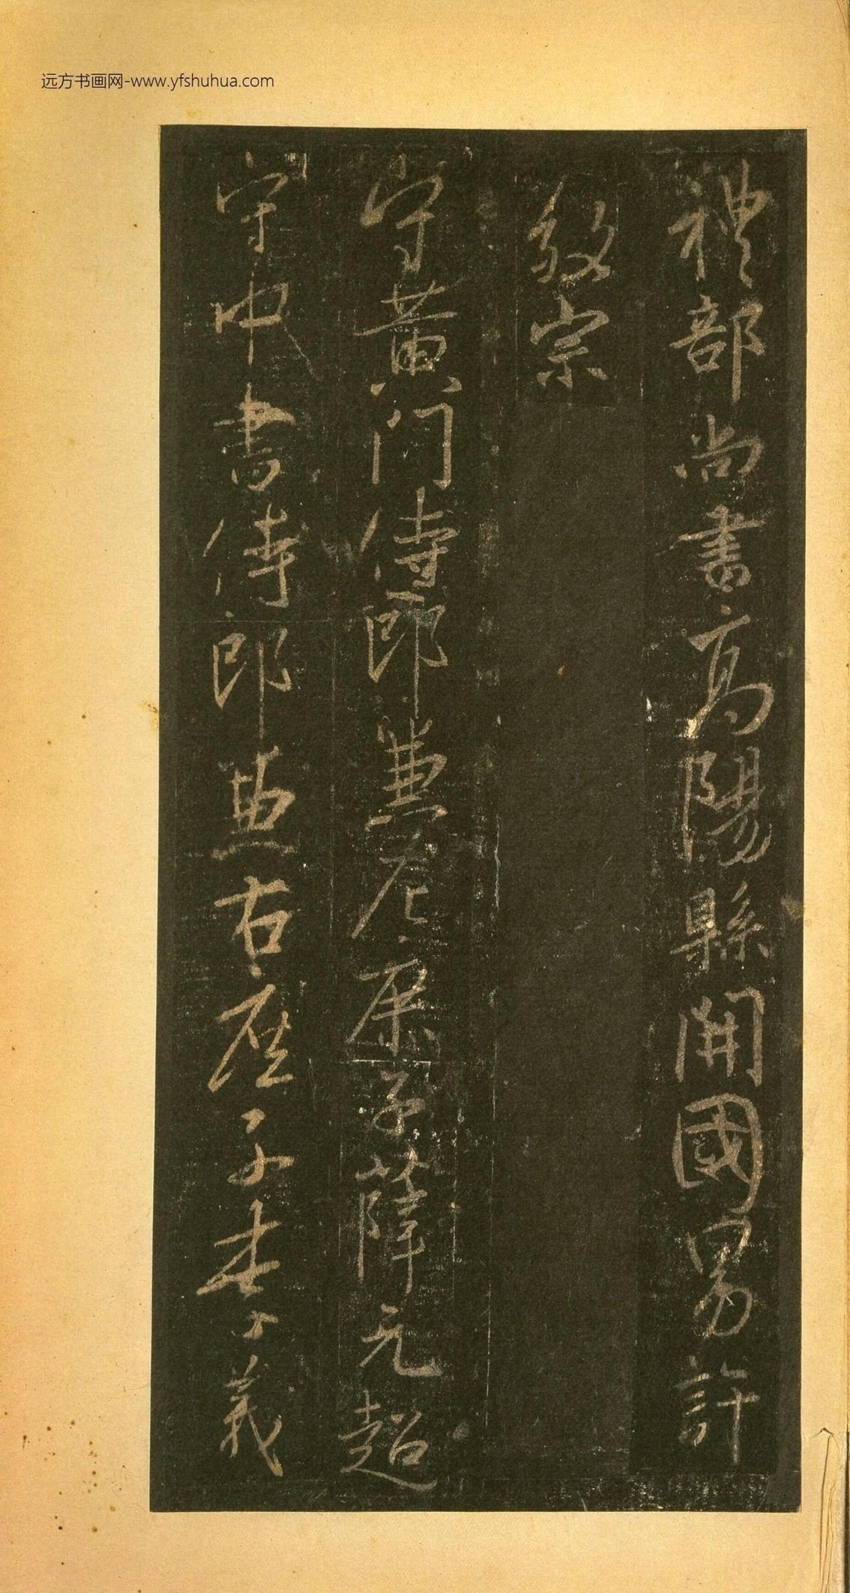 远方书画网-www.yfshuhua.com
禮部尚書高陽縣開國男許
敬宗
守黃門侍郎兼左庶子薛元超
守中書侍郎兼右庶子李義